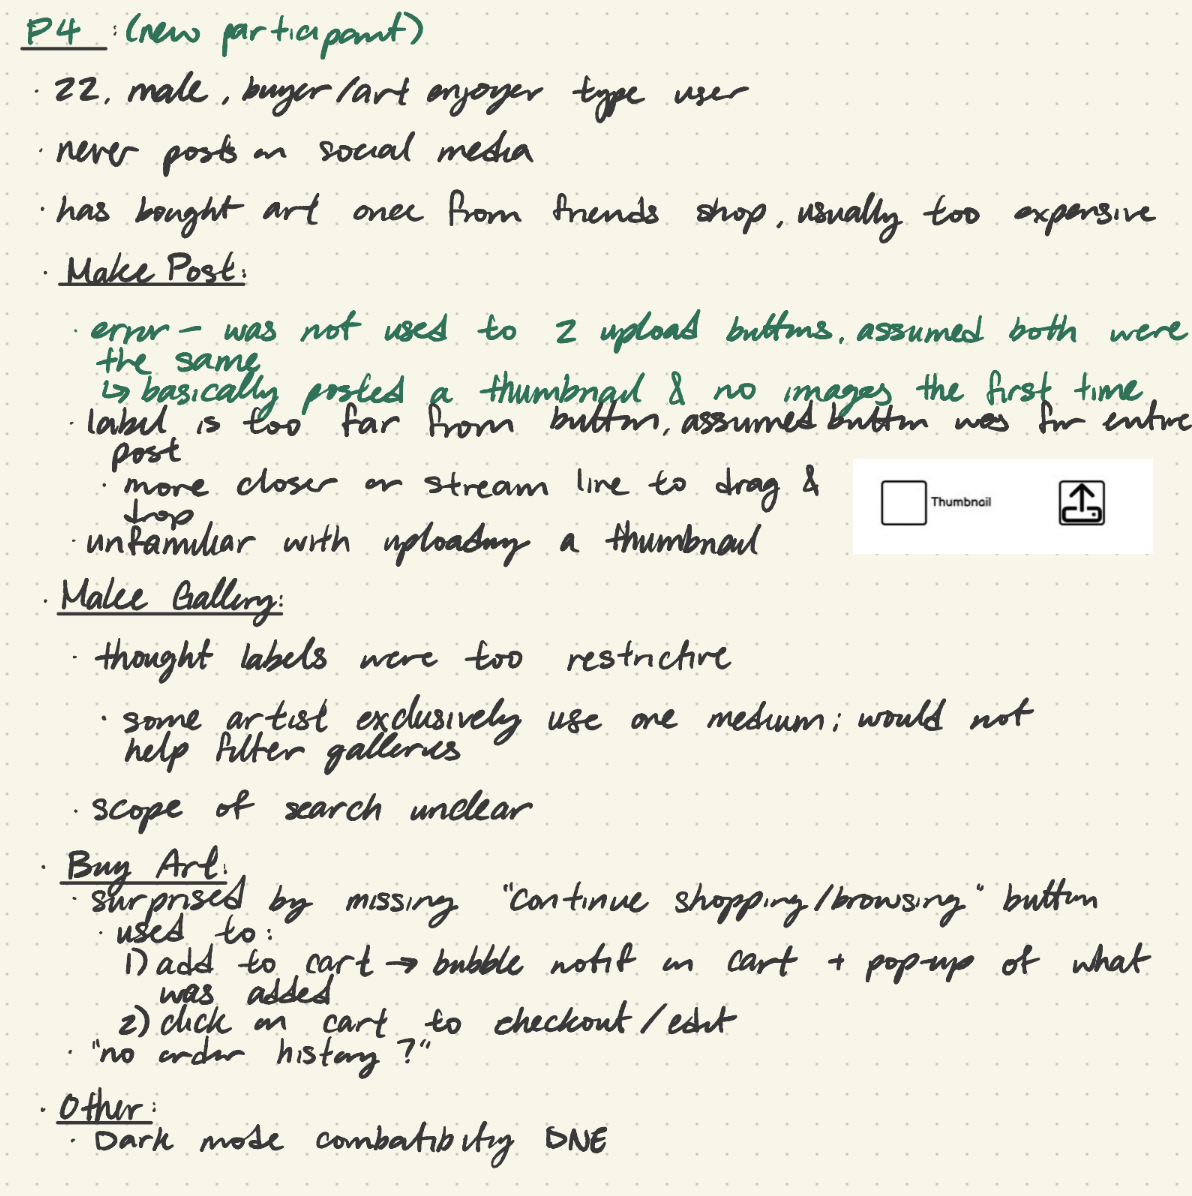 P4 : (new participant)
· 22, male, buyer/art enjoyer type user
· never posts on social media
· has bought art once from friends shop, usually too expensive
· Make Post:
· error – was not used to 2 upload buttons, assumed both were
the same
↳ basically posted a thumbnail & no images the first time
· label is too far from button, assumed button was for entire
post
· more closer or stream line to drag &
drop
Thumbnail
· unfamiliar with uploading a thumbnail
· Make Gallery:
· thought labels were too restrictive
· some artist exclusively use one medium; would not
help filter galleries
· scope of search unclear
· Buy Art:
· surprised by missing "Continue shopping/browsing" button
· used to:
1) add to cart → bubble notif on cart + pop-up of what
was added
2) click on cart to checkout/edit
· "no order history?"
· Other:
· Dark mode combatibility DNE